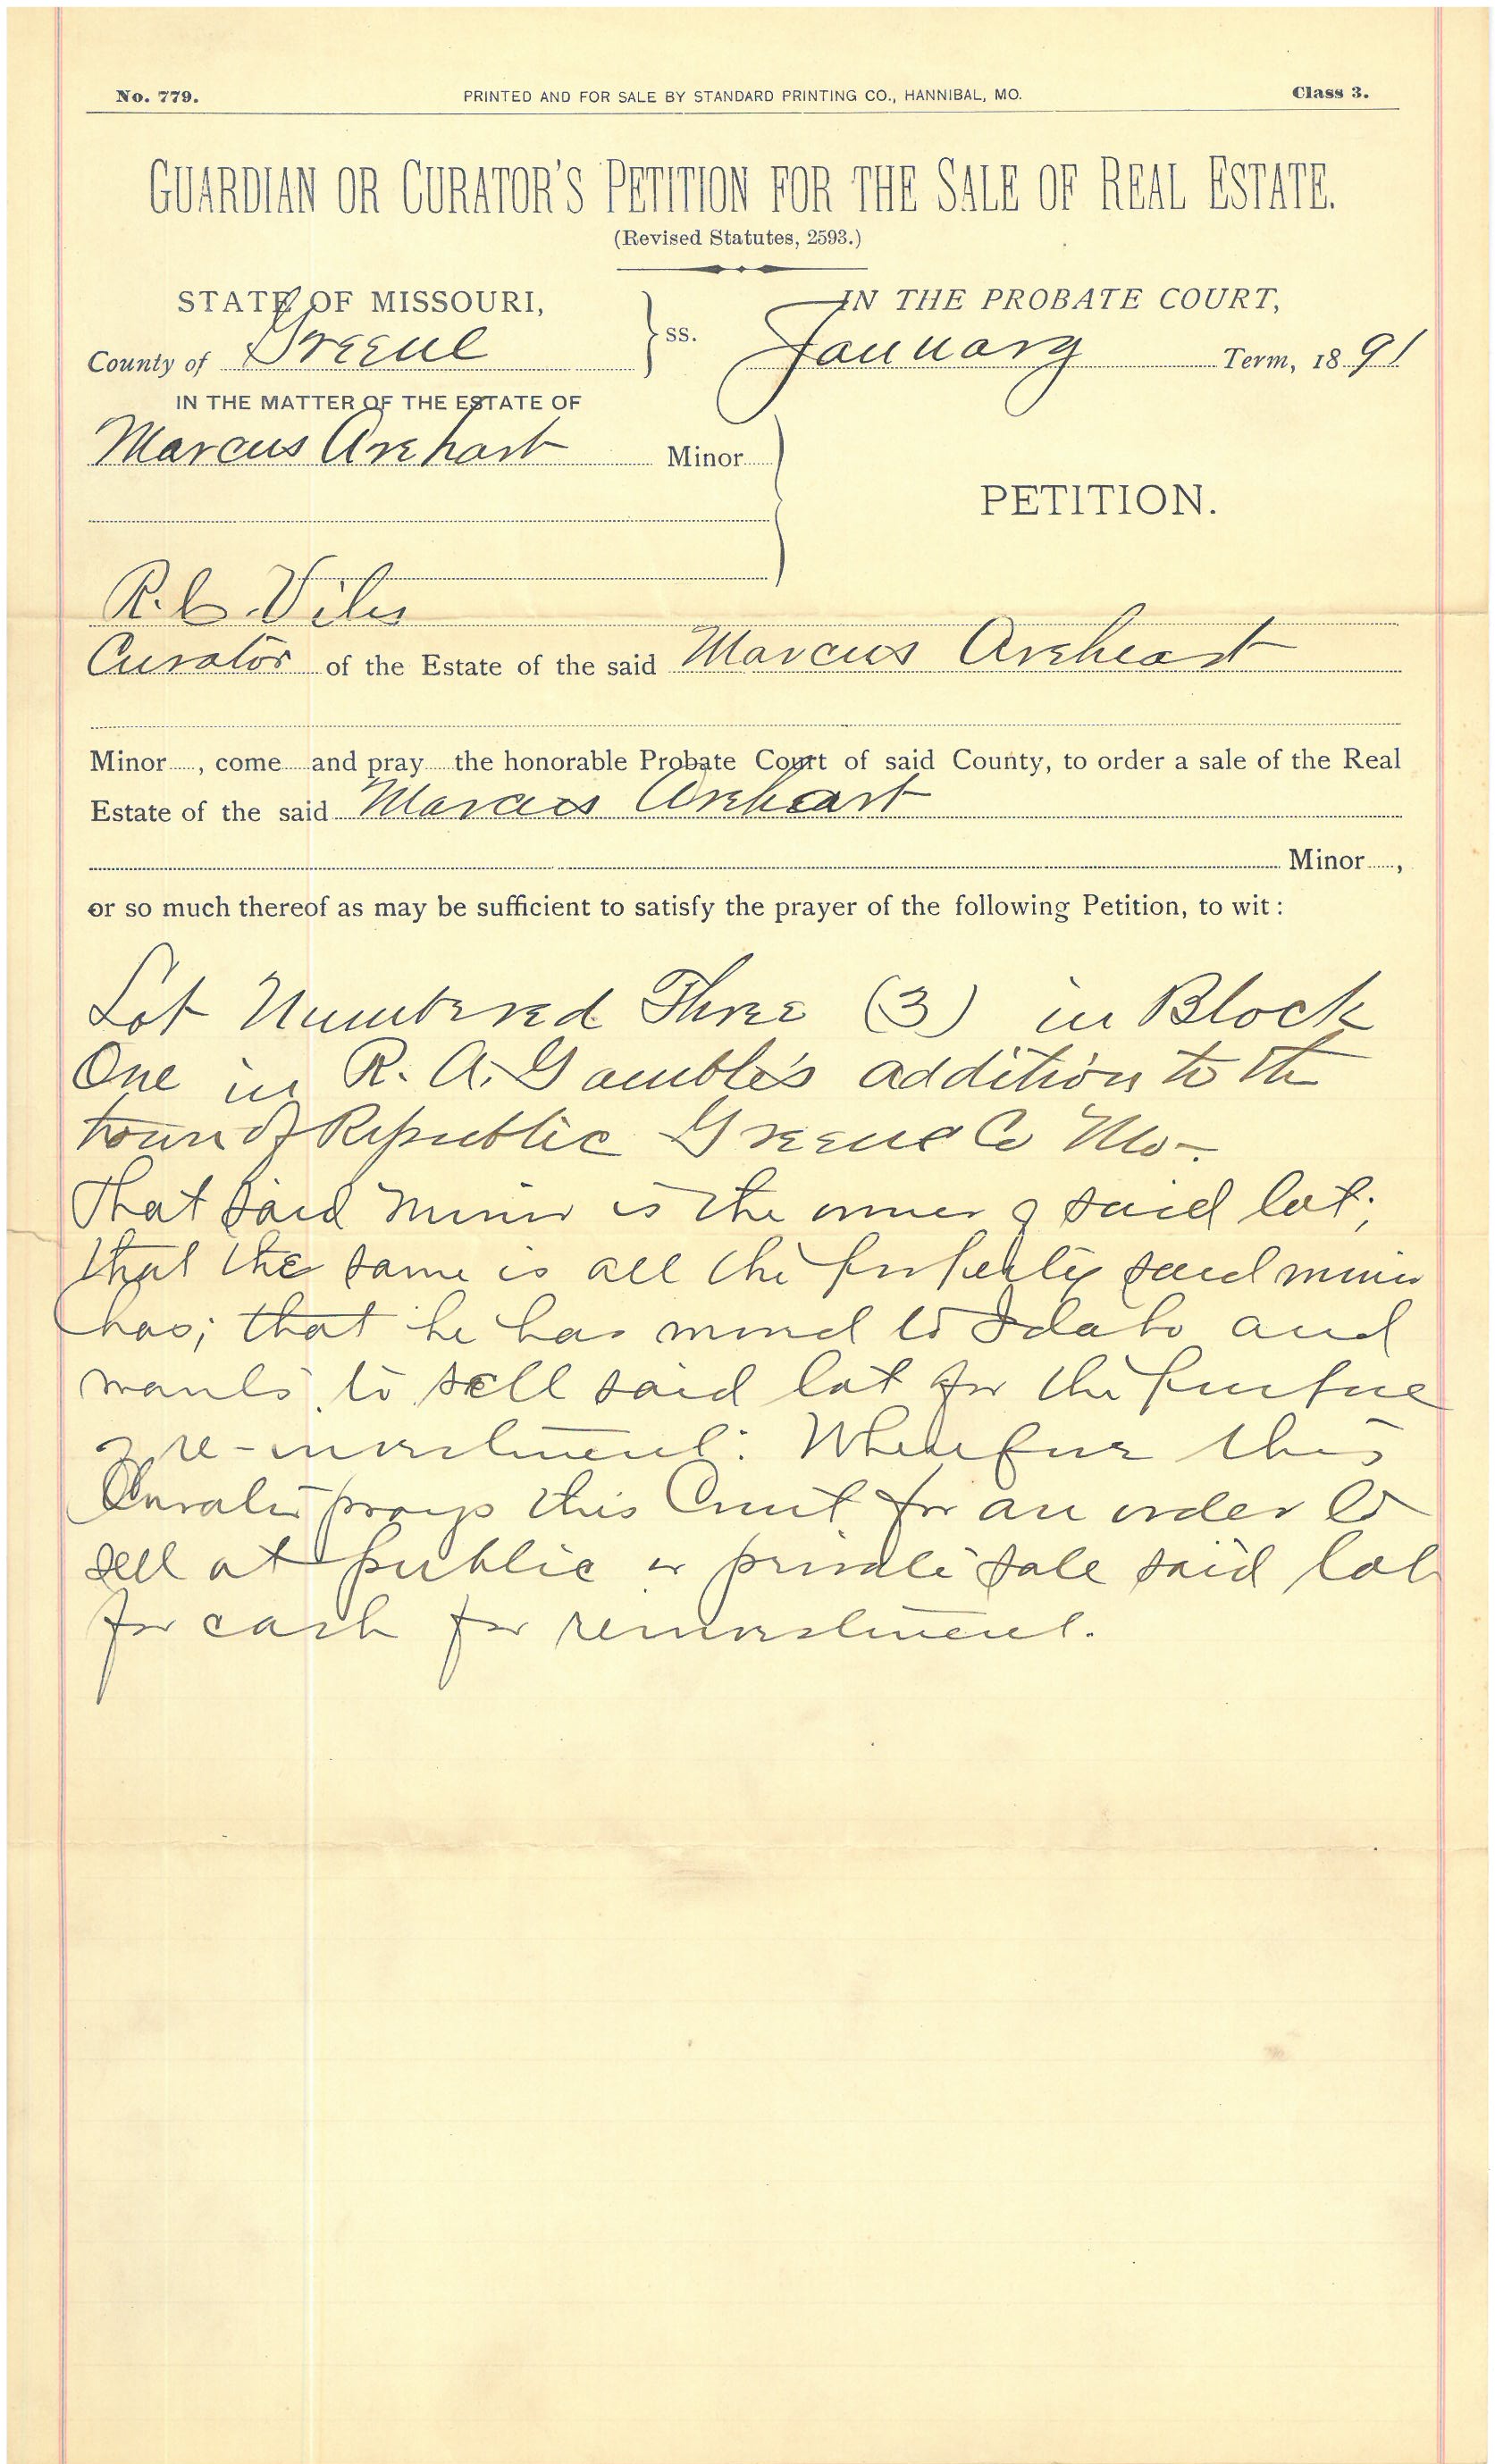 No. 779. PRINTED AND FOR SALE BY STANDARD PRINTING CO., HANNIBAL, MO. Class 3.
GUARDIAN OR CURATOR'S PETITION FOR THE SALE OF REAL ESTATE.
(Revised Statutes, 2593.)
STATE OF MISSOURI, IN THE PROBATE COURT,
County of Greene } ss. January Term, 1891
IN THE MATTER OF THE ESTATE OF
Marcus Arehart Minor
PETITION.
R. C. Viles
Curator of the Estate of the said Marcus Areheart
Minor, come and pray the honorable Probate Court of said County, to order a sale of the Real
Estate of the said Marcus Areheart
Minor,
or so much thereof as may be sufficient to satisfy the prayer of the following Petition, to wit:
Lot Numbered Three (3) in Block
One in R. A. Gamble's addition to the
town of Republic Greene Co Mo.
That said minor is the owner of said lot;
that the same is all the property said minor
has; that he has moved to Idaho and
wants to sell said lot for the purpose
of re-investment: Wherefore this
Curator prays this Court for an order to
sell at public or private sale said lot
for cash for reinvestment.